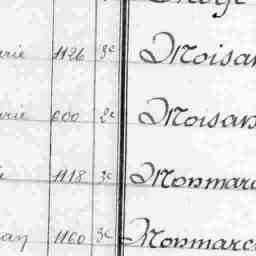 arie 1126 3e Moisan
arie 600 2e Moisan
e 1118 3e Monmarc
an 1160 3e Monmarc